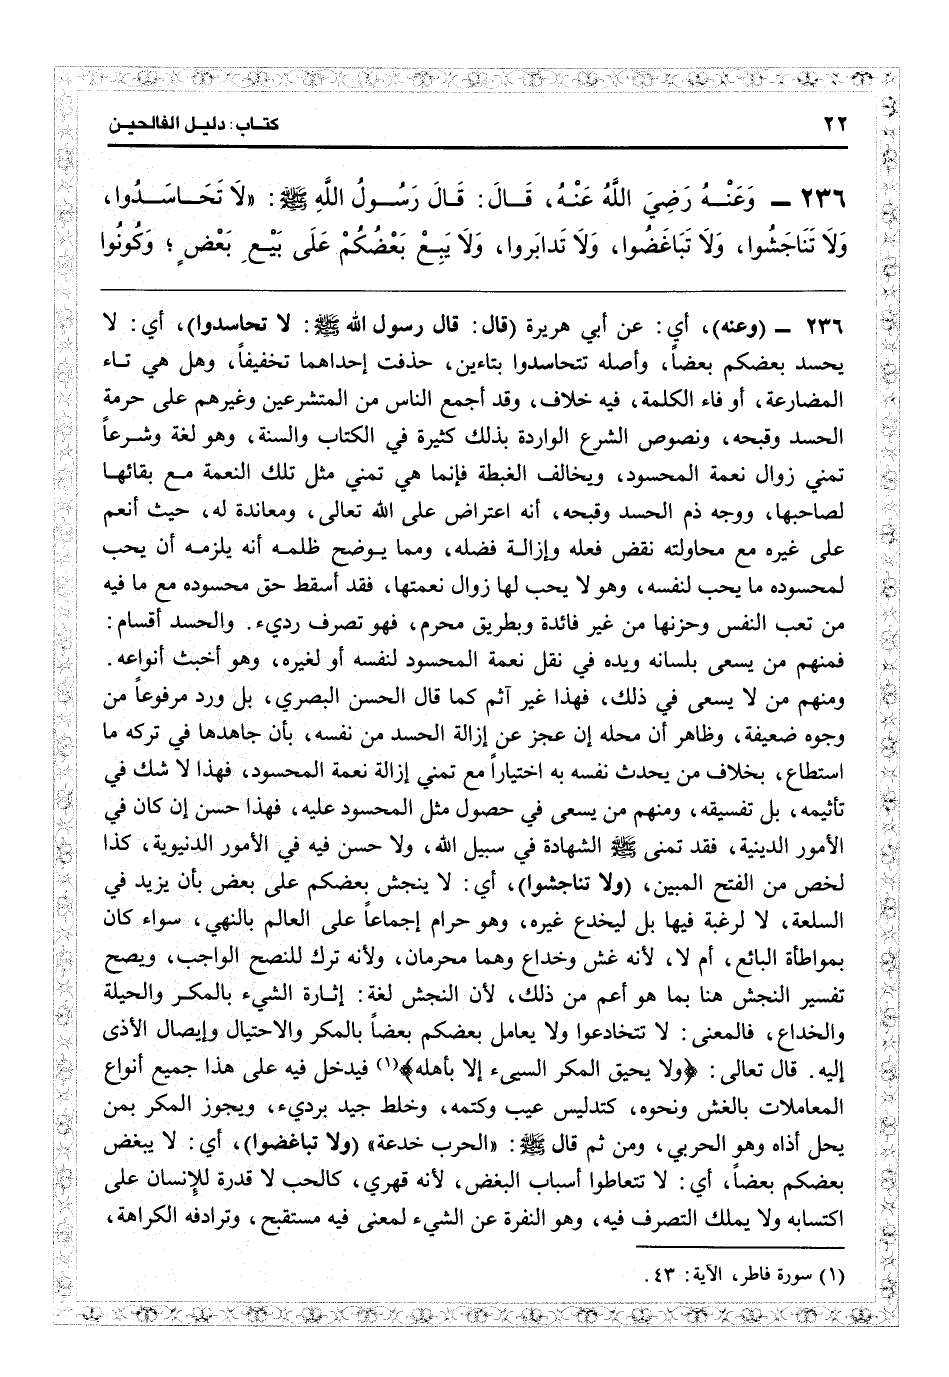 ٢٢
كتاب: دليل الفالحين
٢٣٦ ـ وَعَنْهُ رَضِيَ اللَّهُ عَنْهُ، قَالَ: قَالَ رَسُولُ اللَّهِ ﷺ: «لَا تَحَاسَدُوا،
وَلَا تَنَاجَشُوا، وَلَا تَبَاغَضُوا، وَلَا تَدابَروا، وَلَا يَبِعْ بَعْضُكُمْ عَلَى بَيْعِ بَعْضٍ؛ وَكُونُوا
٢٣٦ ـ (وعنه)، أي: عن أبي هريرة (قال: قال رسول الله ﷺ: لا تحاسدوا)، أي: لا
يحسد بعضكم بعضاً، وأصله تتحاسدوا بتاءين، حذفت إحداهما تخفيفاً، وهل هي تاء
المضارعة، أو فاء الكلمة، فيه خلاف، وقد أجمع الناس من المتشرعين وغيرهم على حرمة
الحسد وقبحه، ونصوص الشرع الواردة بذلك كثيرة في الكتاب والسنة، وهو لغة وشرعاً
تمني زوال نعمة المحسود، ويخالف الغبطة فإنما هي تمني مثل تلك النعمة مع بقائها
لصاحبها، ووجه ذم الحسد وقبحه، أنه اعتراض على الله تعالى، ومعاندة له، حيث أنعم
على غيره مع محاولته نقض فعله وإزالة فضله، ومما يوضح ظلمه أنه يلزمه أن يحب
لمحسوده ما يحب لنفسه، وهو لا يحب لها زوال نعمتها، فقد أسقط حق محسوده مع ما فيه
من تعب النفس وحزنها من غير فائدة وبطريق محرم، فهو تصرف رديء. والحسد أقسام:
فمنهم من يسعى بلسانه ويده في نقل نعمة المحسود لنفسه أو لغيره، وهو أخبث أنواعه.
ومنهم من لا يسعى في ذلك، فهذا غير آثم كما قال الحسن البصري، بل ورد مرفوعاً من
وجوه ضعيفة، وظاهر أن محله إن عجز عن إزالة الحسد من نفسه، بأن جاهدها في تركه ما
استطاع، بخلاف من يحدث نفسه به اختياراً مع تمني إزالة نعمة المحسود، فهذا لا شك في
تأثيمه، بل تفسيقه، ومنهم من يسعى في حصول مثل المحسود عليه، فهذا حسن إن كان في
الأمور الدينية، فقد تمنى ﷺ الشهادة في سبيل الله، ولا حسن فيه في الأمور الدنيوية، كذا
لخص من الفتح المبين، (ولا تناجشوا)، أي: لا ينجش بعضكم على بعض بأن يزيد في
السلعة، لا لرغبة فيها بل ليخدع غيره، وهو حرام إجماعاً على العالم بالنهي، سواء كان
بمواطأة البائع، أم لا، لأنه غش وخداع وهما محرمان، ولأنه ترك للنصح الواجب، ويصح
تفسير النجش هنا بما هو أعم من ذلك، لأن النجش لغة: إثارة الشيء بالمكر والحيلة
والخداع، فالمعنى: لا تتخادعوا ولا يعامل بعضكم بعضاً بالمكر والاحتيال وإيصال الأذى
إليه. قال تعالى: ﴿ولا يحيق المكر السيىء إلا بأهله﴾(١) فيدخل فيه على هذا جميع أنواع
المعاملات بالغش ونحوه، كتدليس عيب وكتمه، وخلط جيد برديء، ويجوز المكر بمن
يحل أذاه وهو الحربي، ومن ثم قال ﷺ: «الحرب خدعة» (ولا تباغضوا)، أي: لا يبغض
بعضكم بعضاً، أي: لا تتعاطوا أسباب البغض، لأنه قهري، كالحب لا قدرة للإنسان على
اكتسابه ولا يملك التصرف فيه، وهو النفرة عن الشيء لمعنى فيه مستقبح، وترادفه الكراهة،
(١) سورة فاطر، الآية: ٤٣.